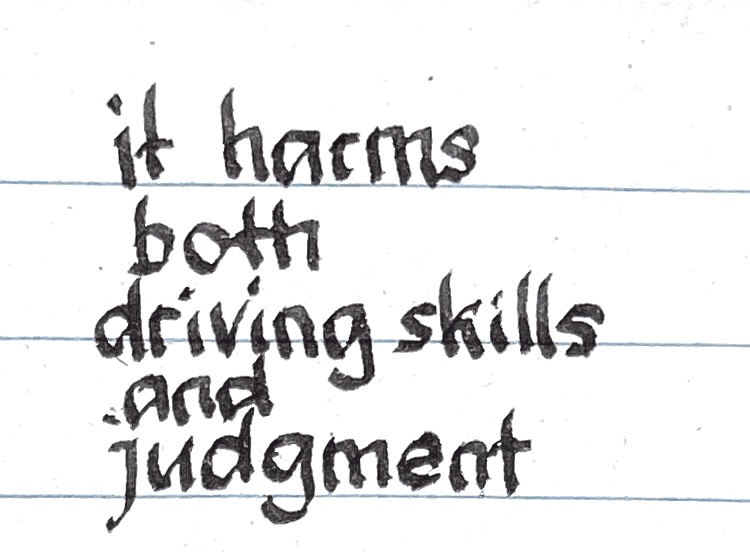 it harms
both
driving skills
and
judgment